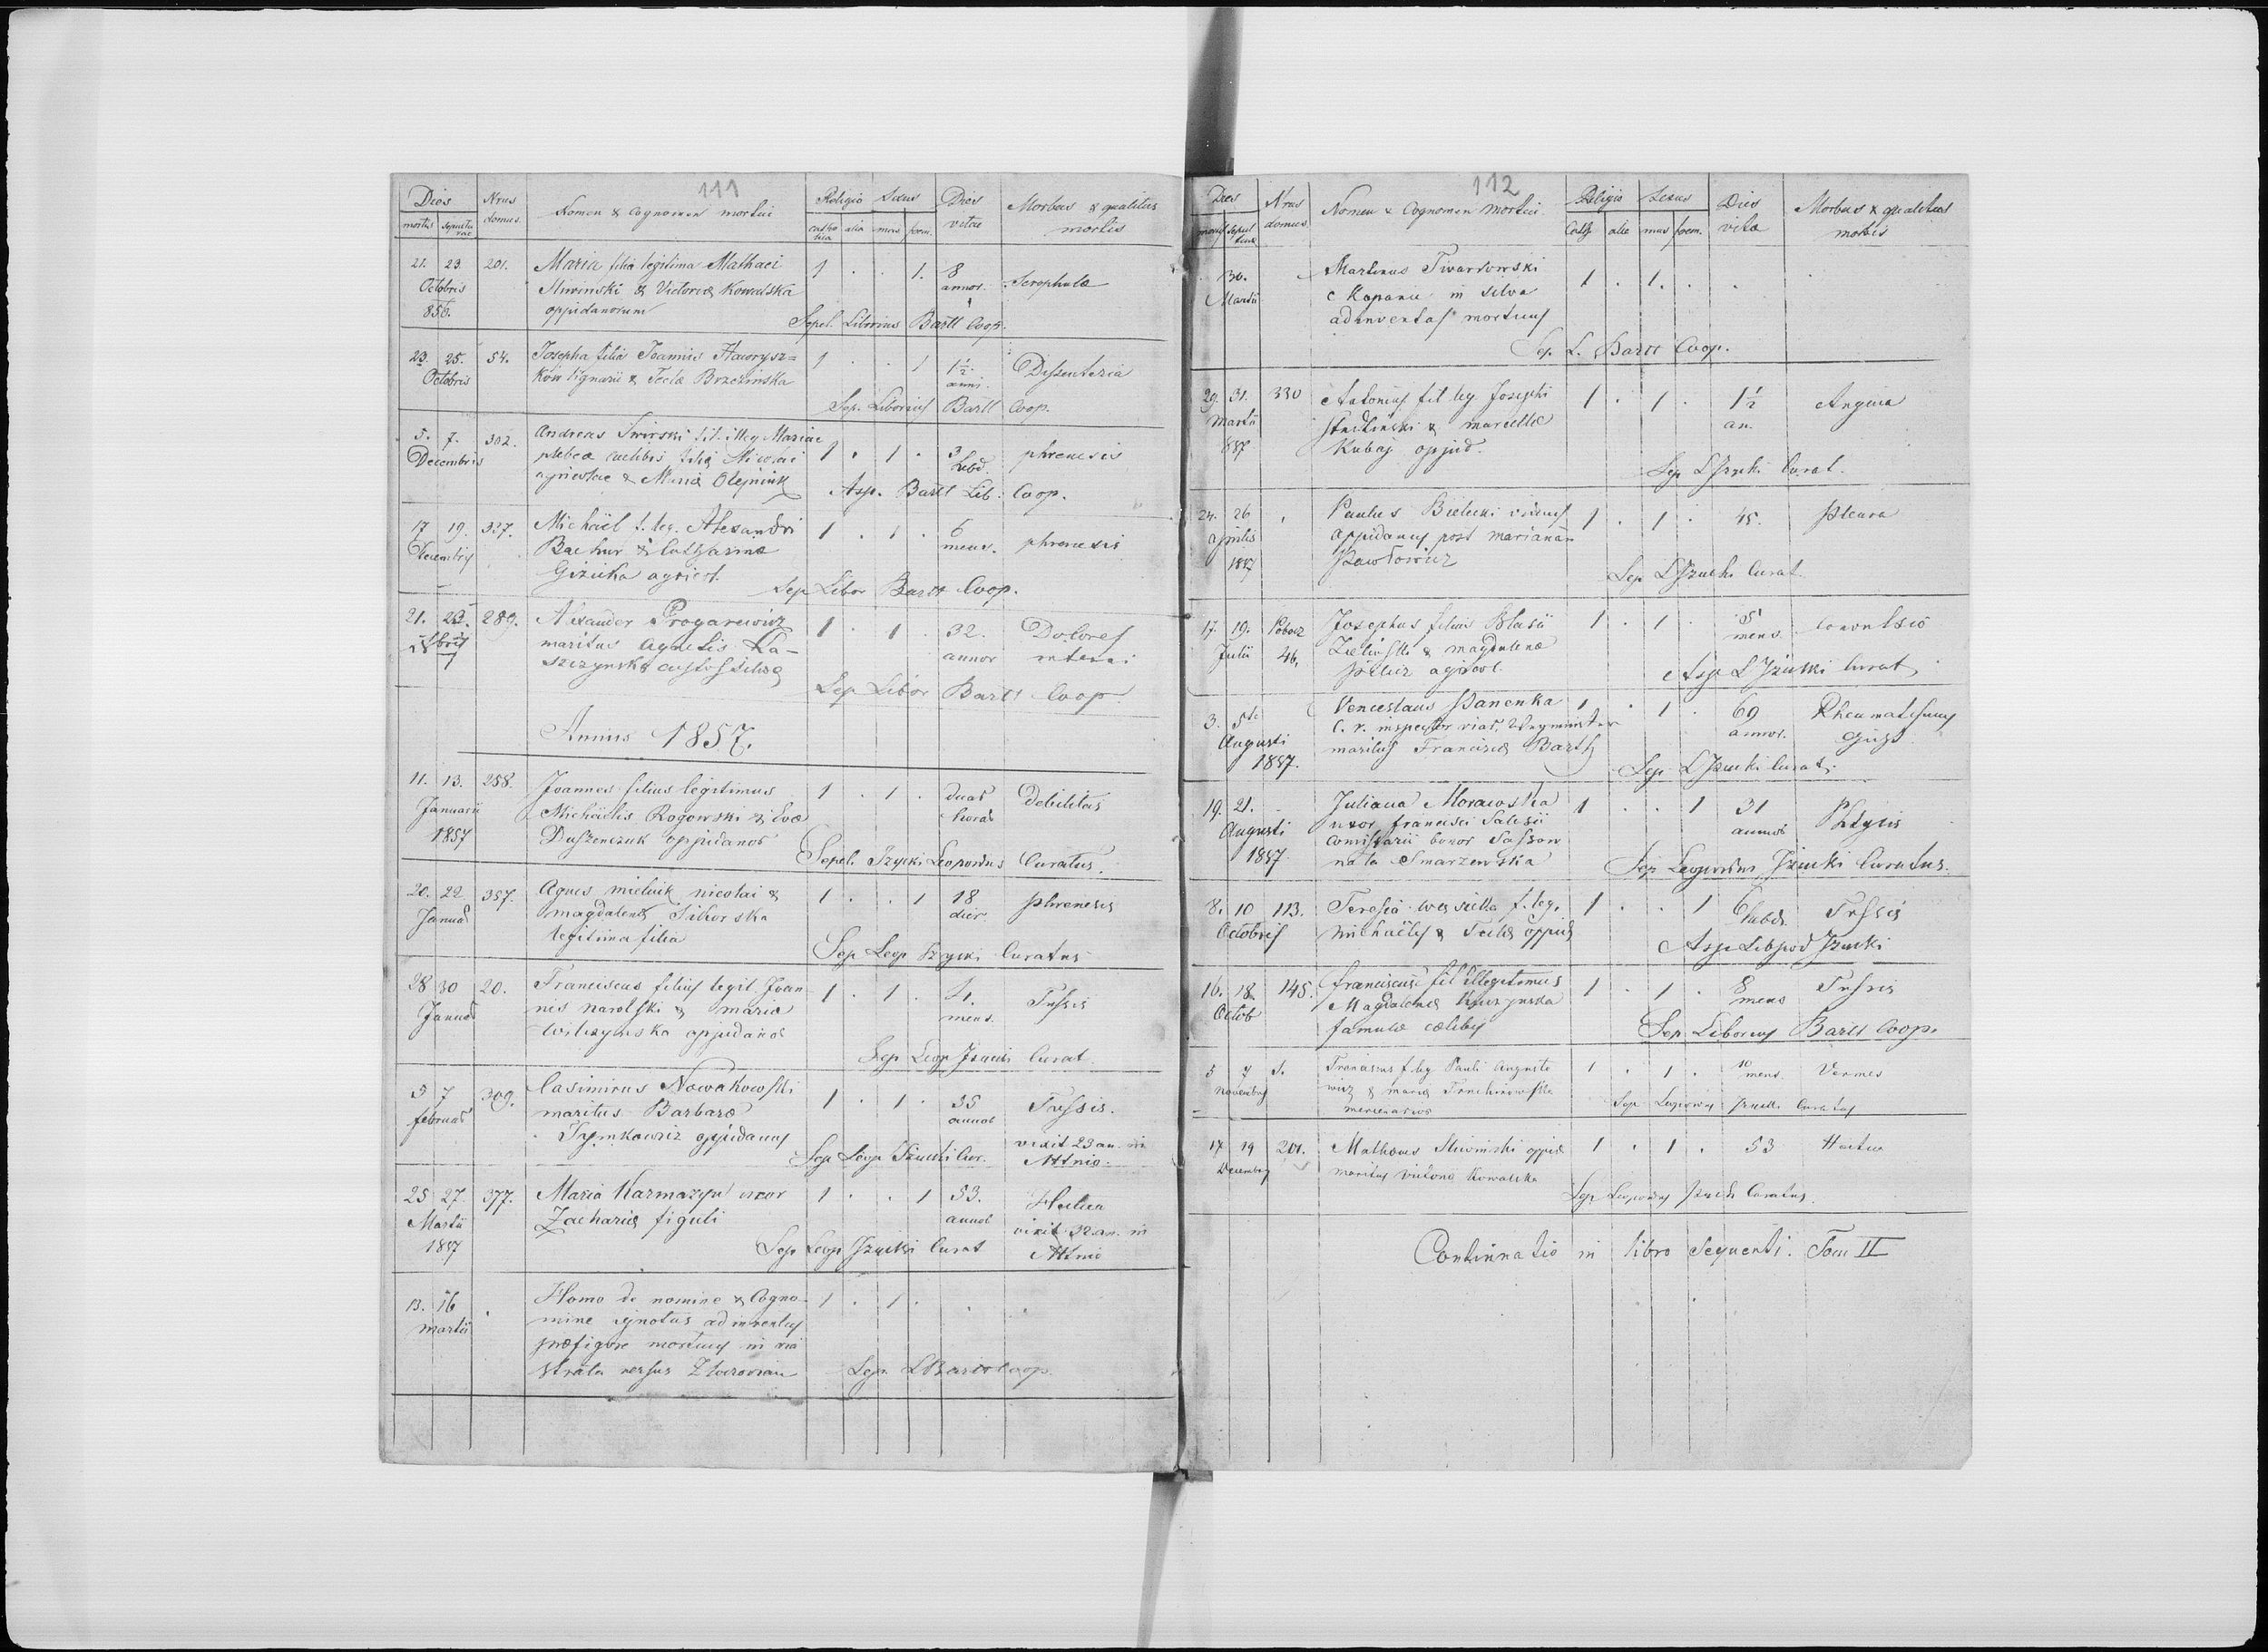 111
Dies Nrus domus Nomen & Cognomen mortui Religio Sexus Dies vitae Morbus & qualitas mortis
mortis sepulturae catholica alia mas foem.
21. 23. 201. Maria filia legitima Mathaei 1 . . 1. 8 Scrophulae
Octobris Sliwinski & Victoriae Kowalska annor.
856. oppidanorum
Sepel. Liborius Bartl Coop.
23. 25. 54. Josepha filia Joannis Hawrysz= 1 . . 1 1½ Dissenteria
Octobris ków lignarii & Teclae Brzezinska anni.
Sep. Liborius Bartl Coop.
5. 7. 302. Andreas Swirski fil. illeg Mariae 1 . 1 . 3 phrenesis
Decembris plebeae caelibis filiae Nicolai hebd.
agricolae & Mariae Olejnink
Asp. Bartl Lib: Coop.
17 19. 337. Michäel f. leg. Alexandri 1 . 1 . 6 phrenesis
Decembris Bachur & Catharinae mens.
Gizicka agricol.
Sep Libor Bartl Coop.
21. 23. 289. Alexander Progarewicz 1 . 1 . 32. Dolores
Xbris maritus Agnetis Ka- annor interni
szczynska custos silvae
Sep Libor Bartl Coop.
Annus 1857.
11. 13. 258. Joannes filius legitimus 1 . 1 . duas Debilitas
Januarii Michäelis Rogowski & Evae horas
1857 Duszenczuk oppidanor
Sepel. Izycki Leopoldus Curatus.
20. 22 357. Agnes mielnik nicolai & 1 . . 1 18 phrenesis
Januar magdalenae Sikorska dier.
legitima filia
Sep Leop Izycki Curatus
28 30 20. Franciscus filius legit. Joan- 1 . 1 . 4. Tussis
Januar nis Narolski & maria mens.
Wilczynska oppidanor
Sep Leop Izycki Curat
5 7 309. Casimirus Nowakowski 1 . 1 . 35 Tussis.
februar maritus Barbarae annor
Tymkowicz oppidanus vixit 23 an. in
Sep Leop Izycki Cur. Mtnio.
25 27. 377. Maria Karmazyn uxor 1 . . 1 53. Hectica
Martii Zachariae figuli annor vixit 32 an. in
1857 Sep Leop Izycki Curat Mtnio
13. 16 . Homo de nomine & Cogno- 1 . 1 . . .
Martii mine ignotus adinventus
praefigore mortuus in via
strata versus Zlocrowian
Sep. L Bartl Coop.
112
Dies Nrus domus Nomen & Cognomen mortui Religio Sexus Dies vitae Morbus & qualitas mortis
mortis sepulturae Cath alia mas foem.
30. Martinus Twardowski 1 . 1. . .
Martii e Koparie in silva
adinventus mortuus
Sep. L. Bartl Coop.
29. 31. 330 Antonius fil leg. Josephi 1 . 1 . 1½ Angina
Martii Studzinski & Marcellae an.
857 Kubaj oppid.
Sep L Izycki Curat.
24. 26 . Paulus Bielecki viduus 1 . 1 . 45. Pleura
Aprilis oppidanus post Mariannam
1857 Pawlowicz
Sep L Izycki Curat.
17. 19. Pobocz Josephus filius Blasii 1 . 1 . 5 Convulsio
Julii 46. Zielinski & Magdalenae mens.
agricol.
Asp L Izycki Curat,
3. 5te Venceslaus Panenka 1 . 1 . 69 Rheumatismus
Augusti C. r. inspector viar. Wegmeister annor.
1857. maritus Franciscae Barth
Sep L Izycki Curat;
19. 21. - Juliana Morawska 1 . . 1 31 Phtysis
Augusti uxor francisci Salesii annor
1857. Comissarii bonor Sassow
nata Smarzewska
Sep Leopoldus Izycki Curatus.
8. 10 113. Teresia f. leg. 1 . . 1 6 Tussis
Octobris Michäelis & Teclae oppid hebd.
Asp Leopod Izycki
16. 18. 145. franciscus fil illegitimus 1 . 1 . 8 Tussis
Octob Magdalenae mens
famulae caelibis
Sep. Liborius Bartl Coop.
5 7 5. Franciscus f. leg Pauli Augusto 1 . 1 . 10 Vermes
Novembris wicz & mariae mens.
mercenarior
Sep Leopoldus Izycki Curatus
17 19 201. Mathäus Sliwinski oppid 1 . 1 . 53 Hectica
Decembris maritus Victoriae Kowalska
Sep Leopoldus Izycki Curatus.
Continuatio in libro sequenti. Tom II